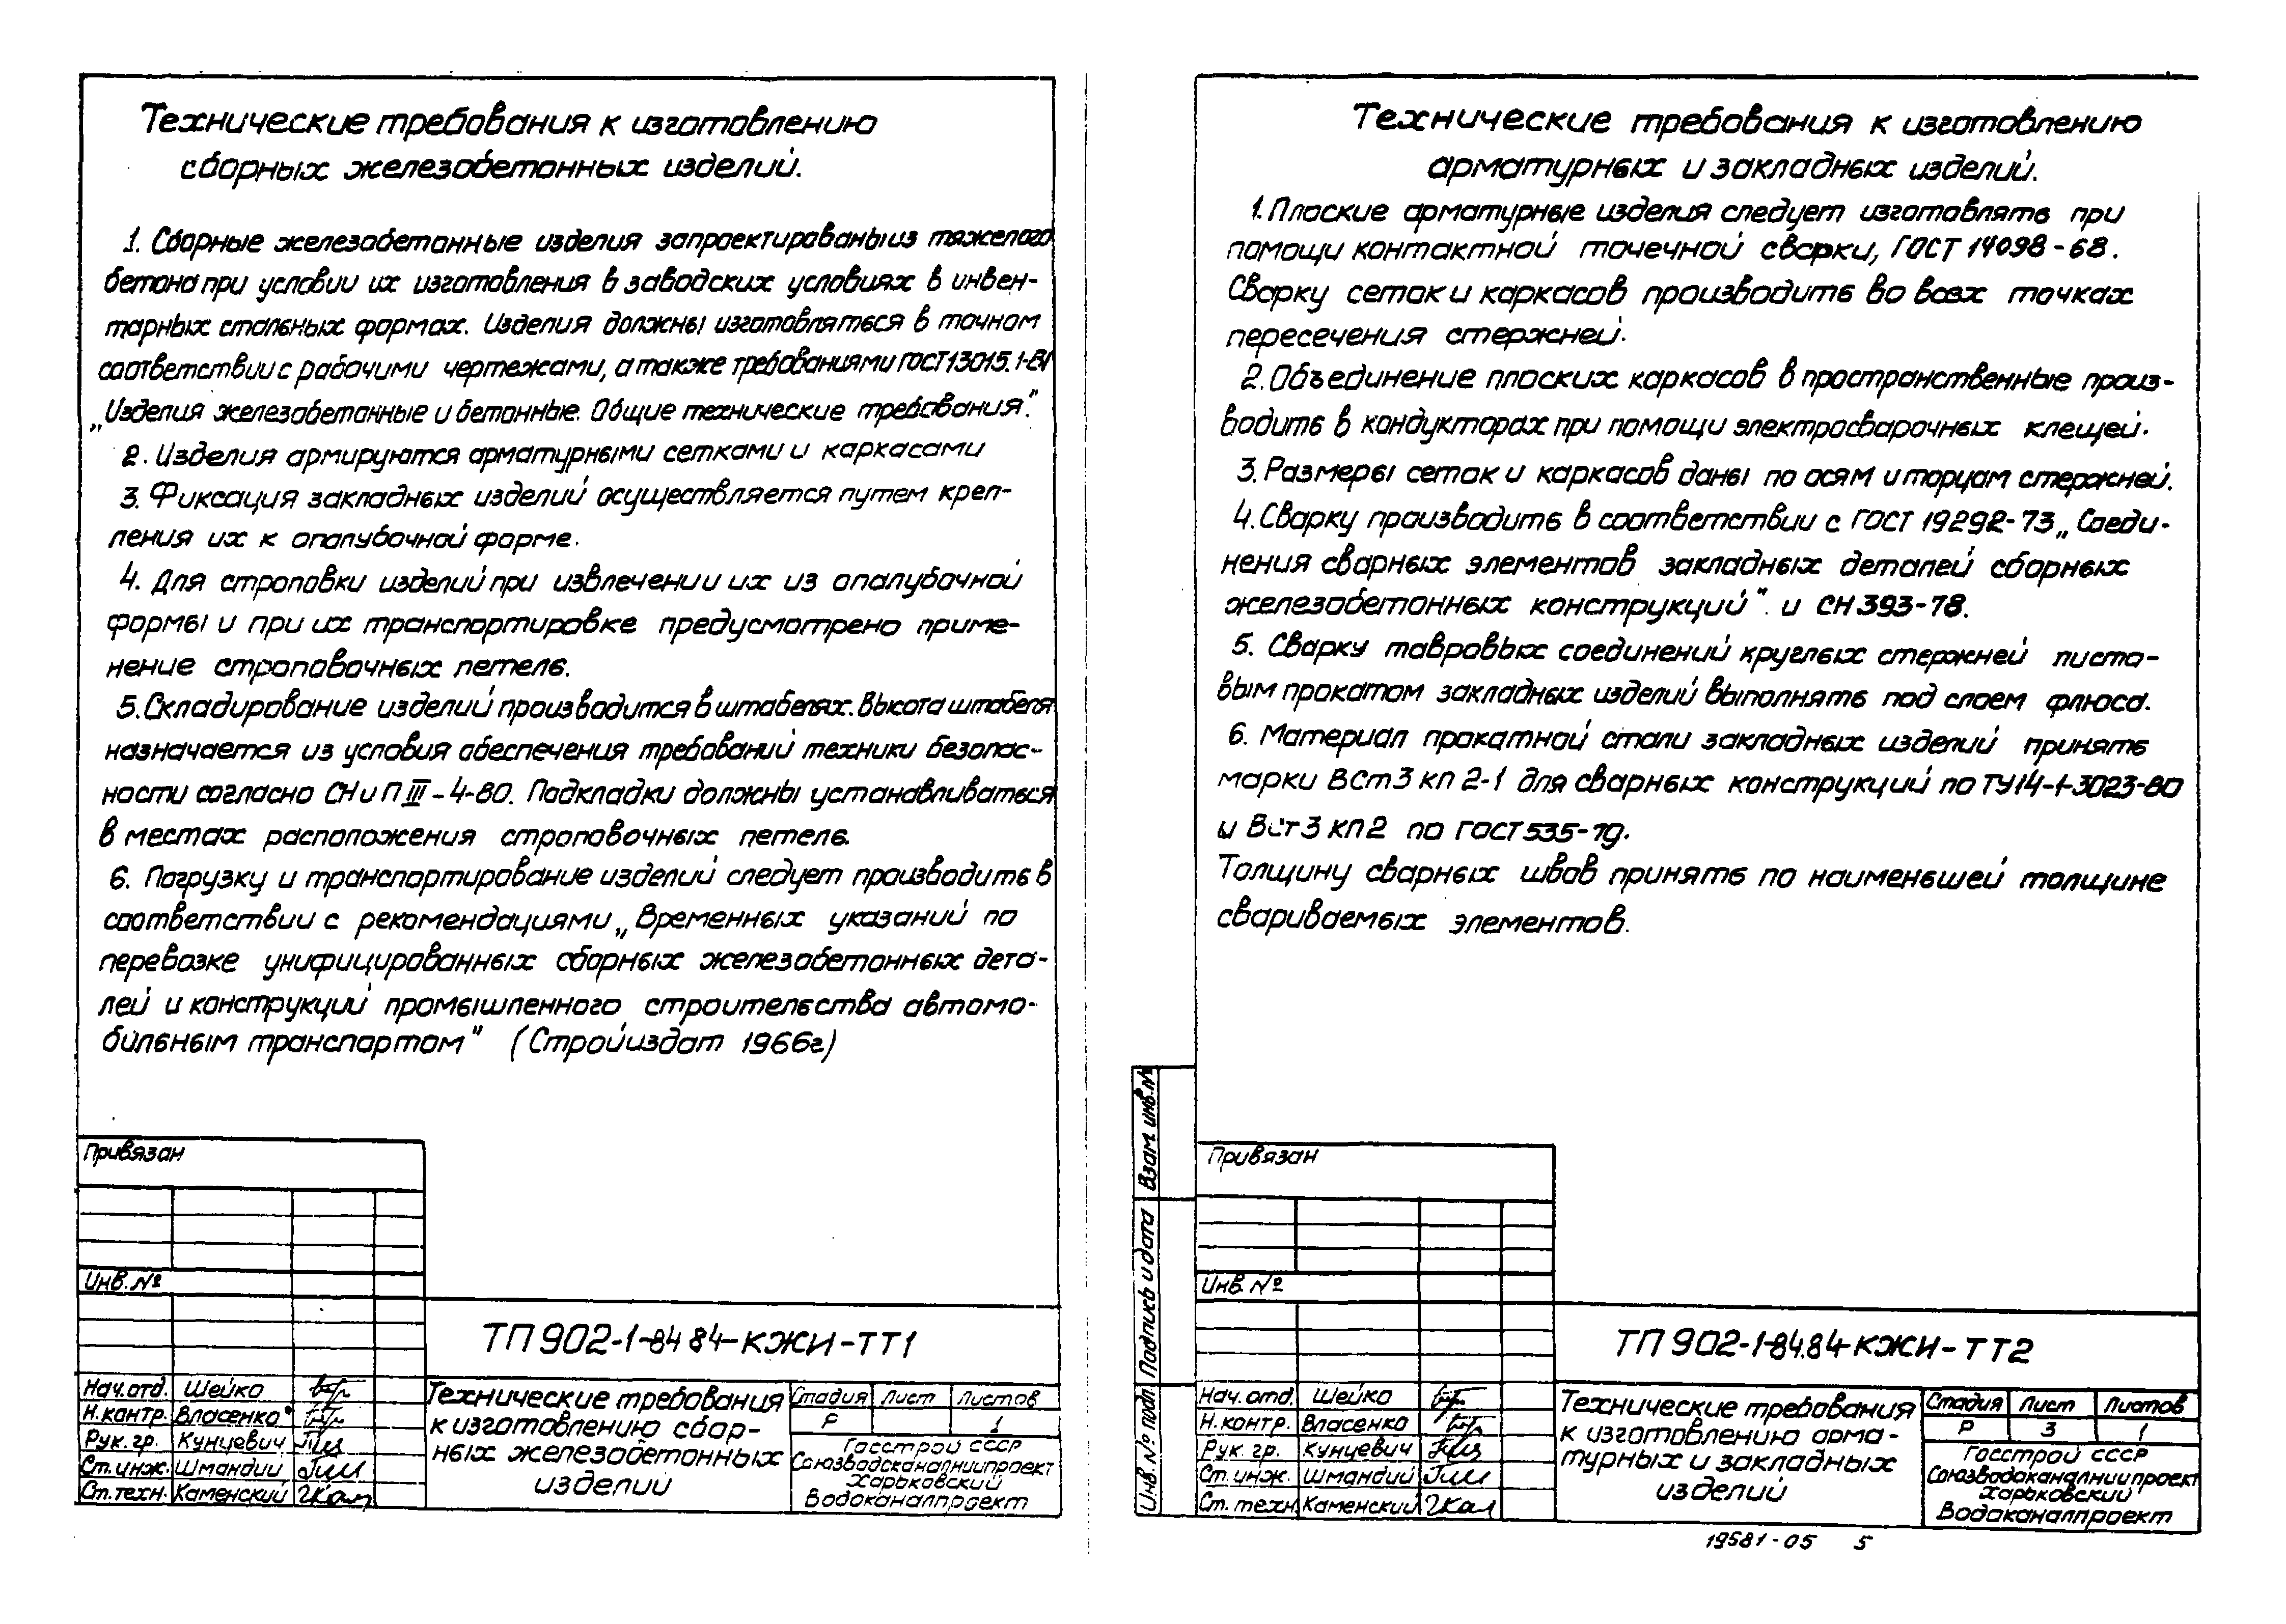 Технические требования к изготовлению
сборных железобетонных изделий.
1. Сборные железобетонные изделия запроектированы из тяжелого
бетона при условии их изготовления в заводских условиях в инвен-
тарных стальных формах. Изделия должны изготовляться в точном
соответствии с рабочими чертежами, а также требованиями ГОСТ 13015.1-81
„Изделия железобетонные и бетонные. Общие технические требования."
2. Изделия армируются арматурными сетками и каркасами
3. Фиксация закладных изделий осуществляется путем креп-
ления их к опалубочной форме.
4. Для строповки изделий при извлечении их из опалубочной
формы и при их транспортировке предусмотрено приме-
нение строповочных петель.
5. Складирование изделий производится в штабелях. Высота штабеля
назначается из условия обеспечения требований техники безопас-
ности согласно СНиП III-4-80. Подкладки должны устанавливаться
в местах расположения строповочных петель.
6. Погрузку и транспортирование изделий следует производить в
соответствии с рекомендациями „Временных указаний по
перевозке унифицированных сборных железобетонных дета-
лей и конструкций промышленного строительства автомо-
бильным транспортом" (Стройиздат 1966г)
Привязан
Инв. №
ТП 902-1-84 84-КЖИ-ТТ1
Нач. отд. Шейко
Н. контр. Власенко
Рук. гр. Кунцевич
Ст. инж. Шмандий
Ст. техн. Каменский
Технические требования
к изготовлению сбор-
ных железобетонных
изделий
Стадия Лист Листов
Р 1
Госстрой СССР
Союзводоканалниипроект
Харьковский
Водоканалпроект
Технические требования к изготовлению
арматурных и закладных изделий.
1. Плоские арматурные изделия следует изготовлять при
помощи контактной точечной сварки, ГОСТ 14098-68.
Сварку сеток и каркасов производить во всех точках
пересечения стержней.
2. Объединение плоских каркасов в пространственные произ-
водить в кондукторах при помощи электросварочных клещей.
3. Размеры сеток и каркасов даны по осям и торцам стержней.
4. Сварку производить в соответствии с ГОСТ 19292-73 „Соеди-
нения сварных элементов закладных деталей сборных
железобетонных конструкций". и СН 393-78.
5. Сварку тавровых соединений круглых стержней листо-
вым прокатом закладных изделий выполнять под слоем флюса.
6. Материал прокатной стали закладных изделий принять
марки ВСт3 кп 2-1 для сварных конструкций по ТУ14-1-3023-80
и ВСт3 КП2 по ГОСТ 535-79.
Толщину сварных швов принять по наименьшей толщине
свариваемых элементов.
Взам. инв. №
Подпись и дата
Инв. № подл.
Привязан
Инв. №
ТП 902-1-84.84-КЖИ-ТТ2
Нач. отд. Шейко
Н. контр. Власенко
Рук. гр. Кунцевич
Ст. инж. Шмандий
Ст. техн. Каменский
Технические требования
к изготовлению арма-
турных и закладных
изделий
Стадия Лист Листов
Р 3 1
Госстрой СССР
Союзводоканалниипроект
Харьковский
Водоканалпроект
19581-05 5